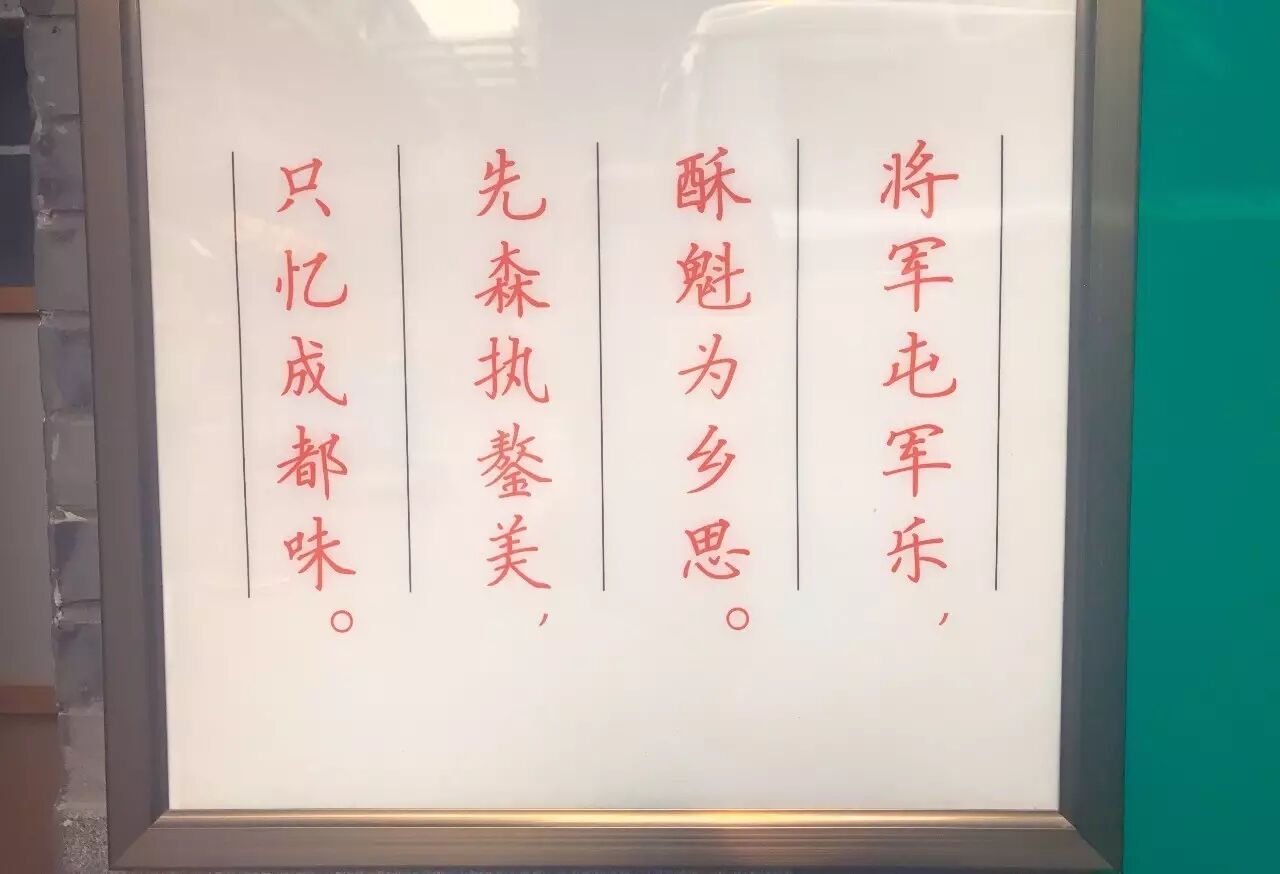 将军屯军乐，
酥魁为乡思。
先森执鏊美，
只忆成都味。